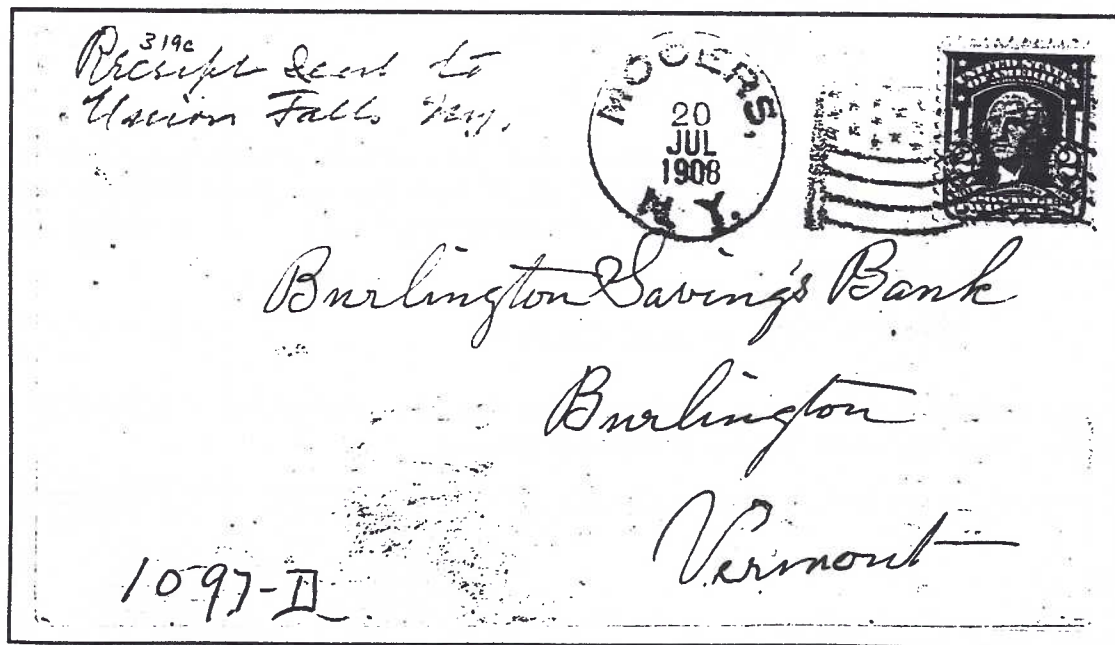 319c
Receipt Sent to
Union Falls Ny.
MOOERS,
20
JUL
1908
N. Y.
UNITED STATES
2 2
Burlington Saving's Bank
Burlington
Vermont
1097-D